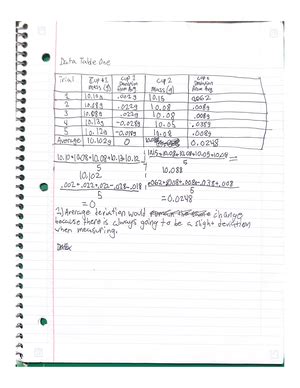 Data Table One
Trial Cup #1 Mass (g) Cup 2 Deviation from Avg Cup 2 Mass (g) Cup 2 Deviation from Avg
1 10.10g .002g 10.15 .062
2 10.08g .022g 10.08 .008g
3 10.08g .022g 10.08 .008g
4 10.13g -0.028g 10.05 .038g
5 10.12g -0.018g 10.08 .008g
Average 10.102g 0 0.0248
10.10+10.08+10.08+10.13+10.12
5
10.102
10.15+10.08+10.08+10.05+10.08
5
10.088
.002+.022+.022-.028-.018
5
=0
5
=0.0248
2) Average deviation would change
because there is always going to be a slight deviation
when measuring.